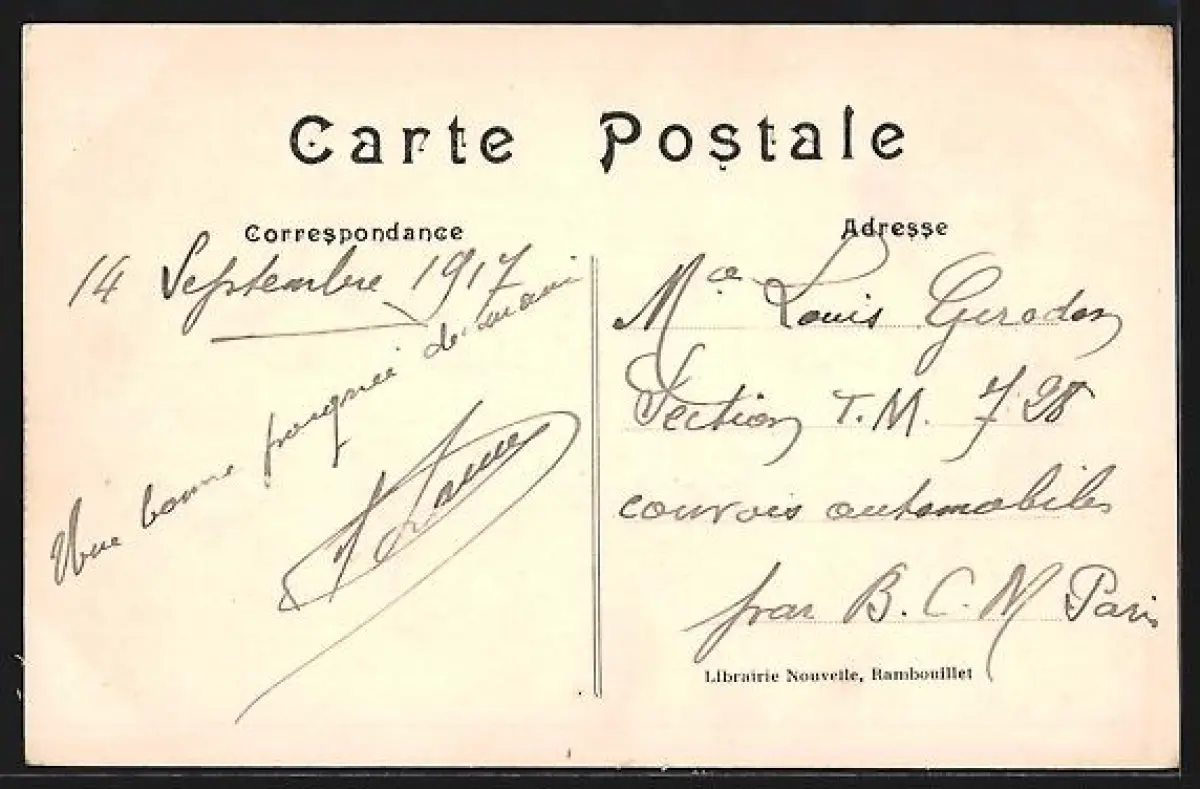 Carte Postale
Correspondance
14 Septembre 1917
Une bonne poignée de main
Adresse
Mr Louis Gerodon
Section T.M. 728
convois automobiles
par B.C.M Paris
Librairie Nouvelle, Rambouillet